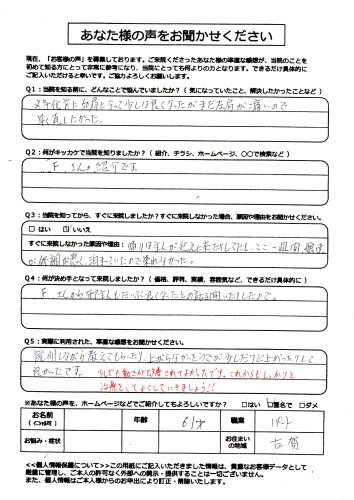 あなた様の声をお聞かせください
現在、「お客様の声」を募集しております。ご来院くださったあなた様の率直な感想が、当院のことを
初めて知る方にとって非常に参考になり、当院にとっても何よりの力となります。できるだけ具体的に
ご記入いただけると幸いです。ご協力よろしくお願いします。
Q1：当院を知る前に、どんなことで悩んでいましたか？（気になっていたこと、解決したかったことなど）
2年位前に右肩となって少しは良くなったがまだ左肩が痛いので
早く直したかった。
Q2：何がキッカケで当院を知りましたか？（紹介、チラシ、ホームページ、○○で検索など）
F さんの紹介です。
Q3：当院を知ってから、すぐに来院しましたか？すぐに来院しなかった場合、原因や理由をお聞かせください。
□ はい ☑ いいえ
すぐに来院しなかった原因や理由：
一週間
が体調が悪く、泊まっていたので来れなかった。
Q4：何が決め手となって来院しましたか？（価格、評判、実績、雰囲気など、できるだけ具体的に）
F さんから
良くなったとの話を聞いたりしたので。
Q5：実際に利用された、率直な感想をお聞かせください。
しながら教えてもらったり、上がらなかったうでが少しだけど上がったりして
良かったです。
少しでも動きが改善されてよかったです。これからもしっかりと
治療をしてよくしていきましょう!!
※あなた様の声を、ホームページなどでご紹介してもよろしいですか？ □はい □匿名で □ダメ
お名前
（イニシャル可）
年齢
61才
職業
パート
お悩み・症状
お住まい
の地域
古賀
<<個人情報保護について>>この用紙にご記入いただきました情報は、貴重なお客様データとして
厳重に管理し、ご本人の許可なく外部への開示・提供することは一切ございません。
また、個人情報はご本人からのお申出により訂正・削除いたします。